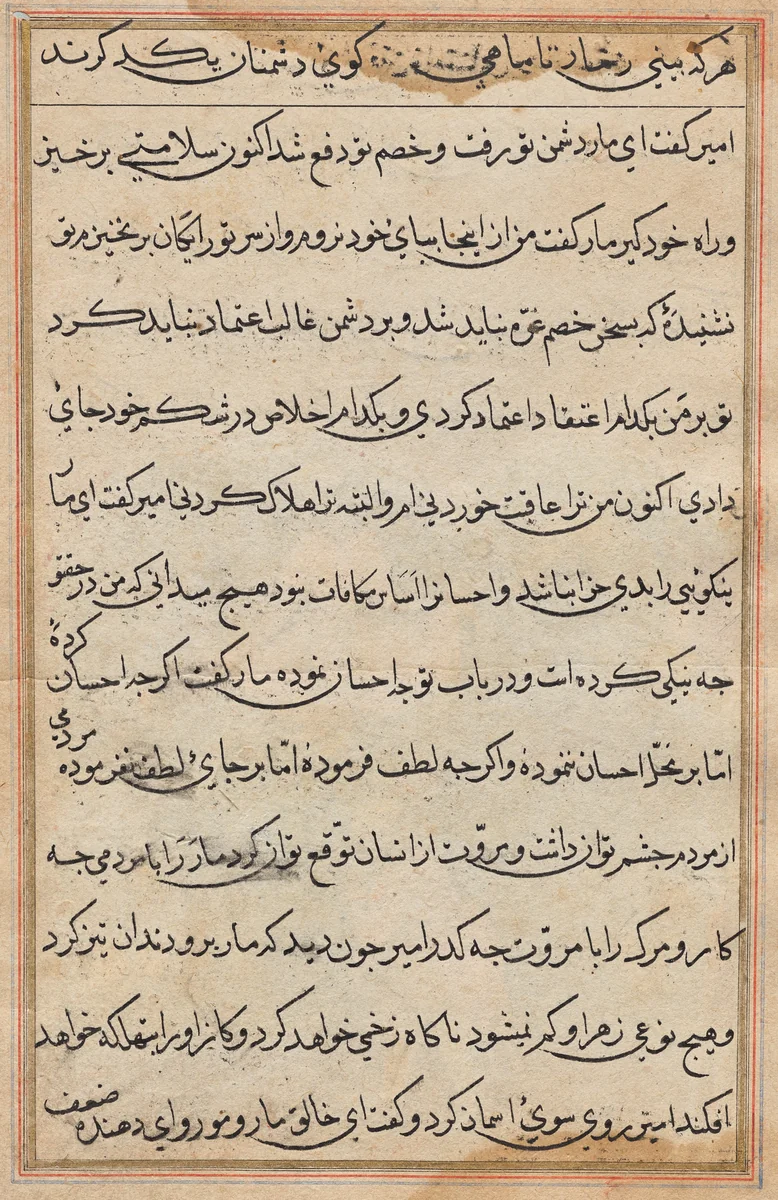 هر که بینی ز مار تا ماهی کوئ دشمنان یکدکرند
امیر کفت ای مار دشمن تو رفت و خصم تو دفع شد اکنون سلامتے بر خیز
و راه خود کیر مار کفت من از اینجا بپائ خود نروم و از سر تو رایکان بر نخیزم تو
نشنیدهٔ که بسخن خصم غرّه نباید شد و بر دشمن غالب اعتماد نباید کرد
تو بر من بکدام اعتقاد اعتماد کردی و بکدام اخلاص در شکم خود جائ
دادی اکنون من ترا عاقبت خوردنی ام و البته ترا هلاک کردنی امیر کفت ای مار
نیکویی را بدی جزا نباشد و احسانرا اساس مکافات نبود هیچ میدانی که من در حق تو
جه نیکی کرده است و در باب تو جه احسان نموده مار کفت اکر جه احسان کردهٔ
امّا بر محلّ احسان ننمودهٔ و اکر جه لطف فرمودهٔ امّا بر جائ لطف نفرموده مردمی
از مردم جشم توان داشت و مروّت از انسان توقّع توان کرد مار را با مردمی جه
کار و مرک را با مروّت جه کدر امیر جون دید که مار برو دندان تیز کرد
و هیچ نوعی زهر او کم نمیشود ناکاه زخمی خواهد کرد و کار او را بتهلکه خواهد
افکند امیر روی سوئ اسمان کرد و کفت ای خالق مار و مور و ای دهندهٔ ضعف